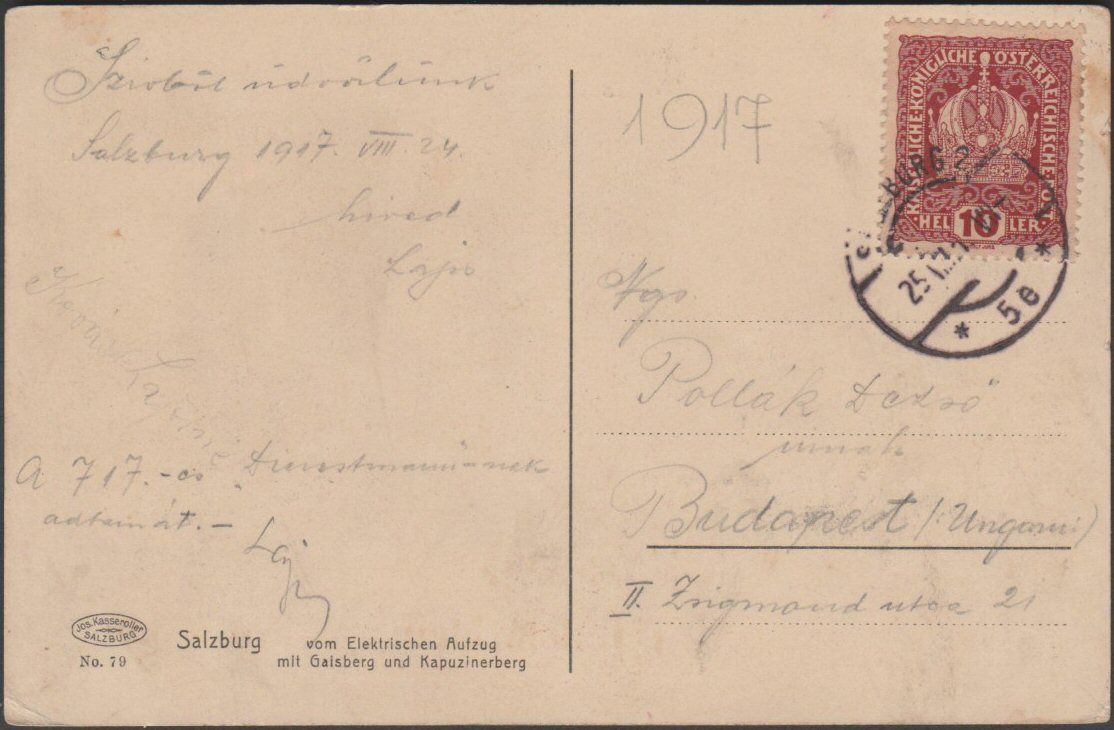 Szivből üdvözlünk
Salzburg 1917. VIII. 24.
hived
Lajos
A 717.-es Dienstmann-nek
adtam át.-
Jos. Kasseroller
SALZBURG
No. 79
Salzburg vom Elektrischen Aufzug
mit Gaisberg und Kapuzinerberg
1917
KAISERLICHE KÖNIGLICHE ÖSTERREICHISCHE POST
HELLER 10
SALZBURG 2
25
* 5e *
Ngs.
Pollák Dezső
urnak
Budapest (:Ungarn:)
II. Zsigmond utca 21